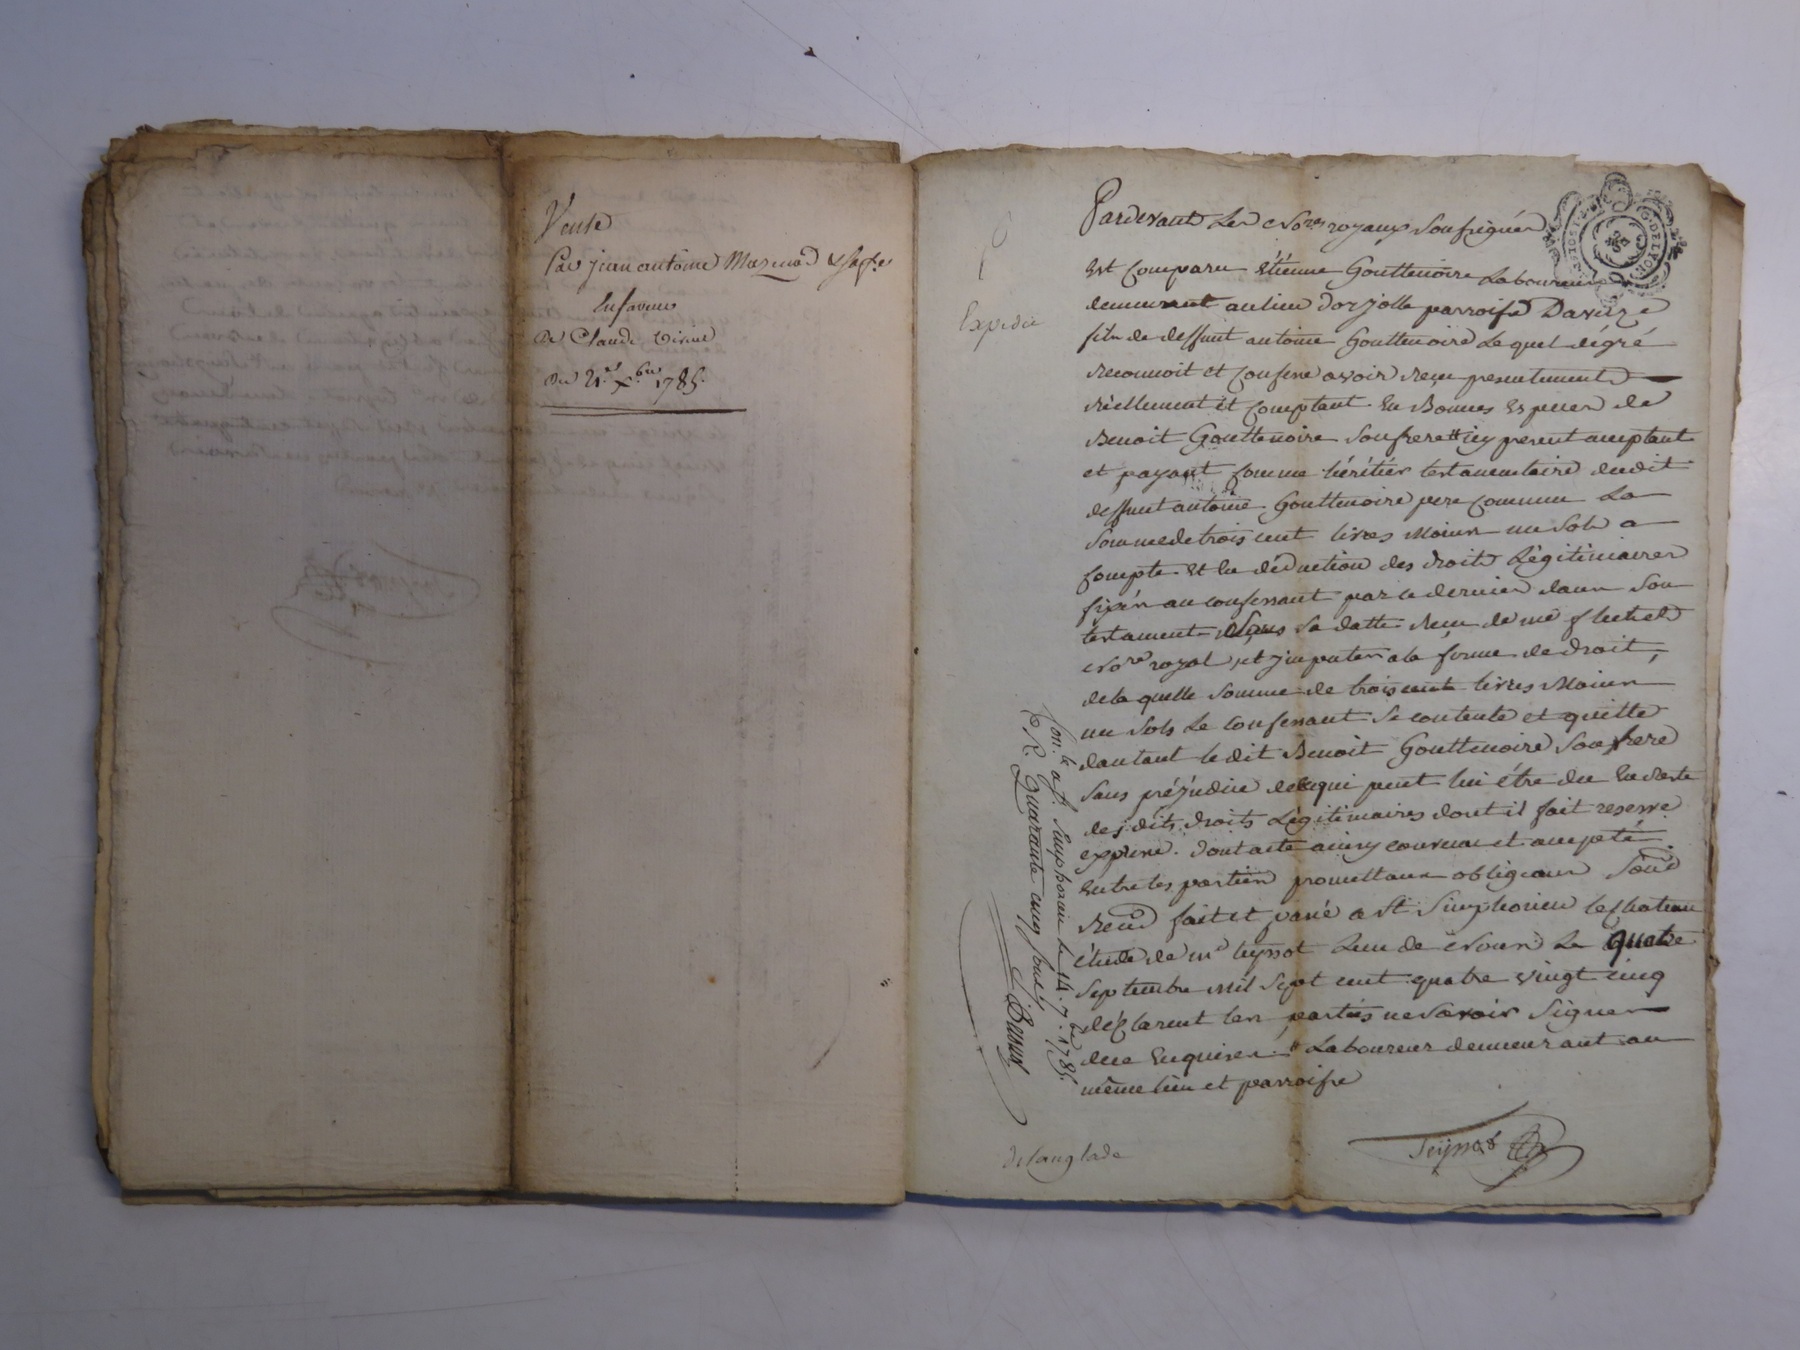 Vente
Par jean antoine
en faveur
de Claude Virieu
Du 21.e X.bre 1785.
Expedié
Pardevant Les No.res royaux Soussignés
Est Comparu étienne Gouttenoire Laboureur
demeurant au lieu d'orjolle parroisse Daveize
fils de deffunt antoine Gouttenoire Lequel dégré
reconnoit et Confesse avoir reçu presentement
réellement et Comptant en Bonnes Especes de
Benoit Gouttenoire son frere # icy present acceptant
et payant Comme héritier testamentaire dudit
deffunt antoine Gouttenoire pere Commun La
Somme de trois cent livres Moins un Sols a
Compte et en déduction des droits Légitimaires
fixés au confessant par ce dernier dans son
testament sous sa datte reçu de me
No.re royal, et jmputer a la forme de droit,
de la quelle somme de trois cent livres Moins
un Sols Le confessant se contente et quitte
dautant ledit Benoit Gouttenoire son frere
Sans préjudice de ce qui peut lui être du en reste
des dits droits Légitimaires dont il fait reserve
expresse. dont acte ainsy convenu et accepté
entre les parties promettans obligeans
fait et passé a St Simphorien le Chateau
étude de me teyssot L'un de Nous No.res Le quatre
Septembre mil Sept cent quatre vingt cinq
déclarent les parties ne Savoir Signer
de ce enquises. # Laboureur demeurant au
même lieu et parroisse
Teyssot
Con.lé a St. Simphorien le 14. 7.bre 1785.
R. Quarante cinq sous
delanglade